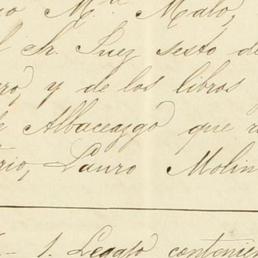 Mᵃ Malo,
Sr. Juez sesto de
y de los libros
Albaceazgo que
Lauro Molin
1. Legajo contenien